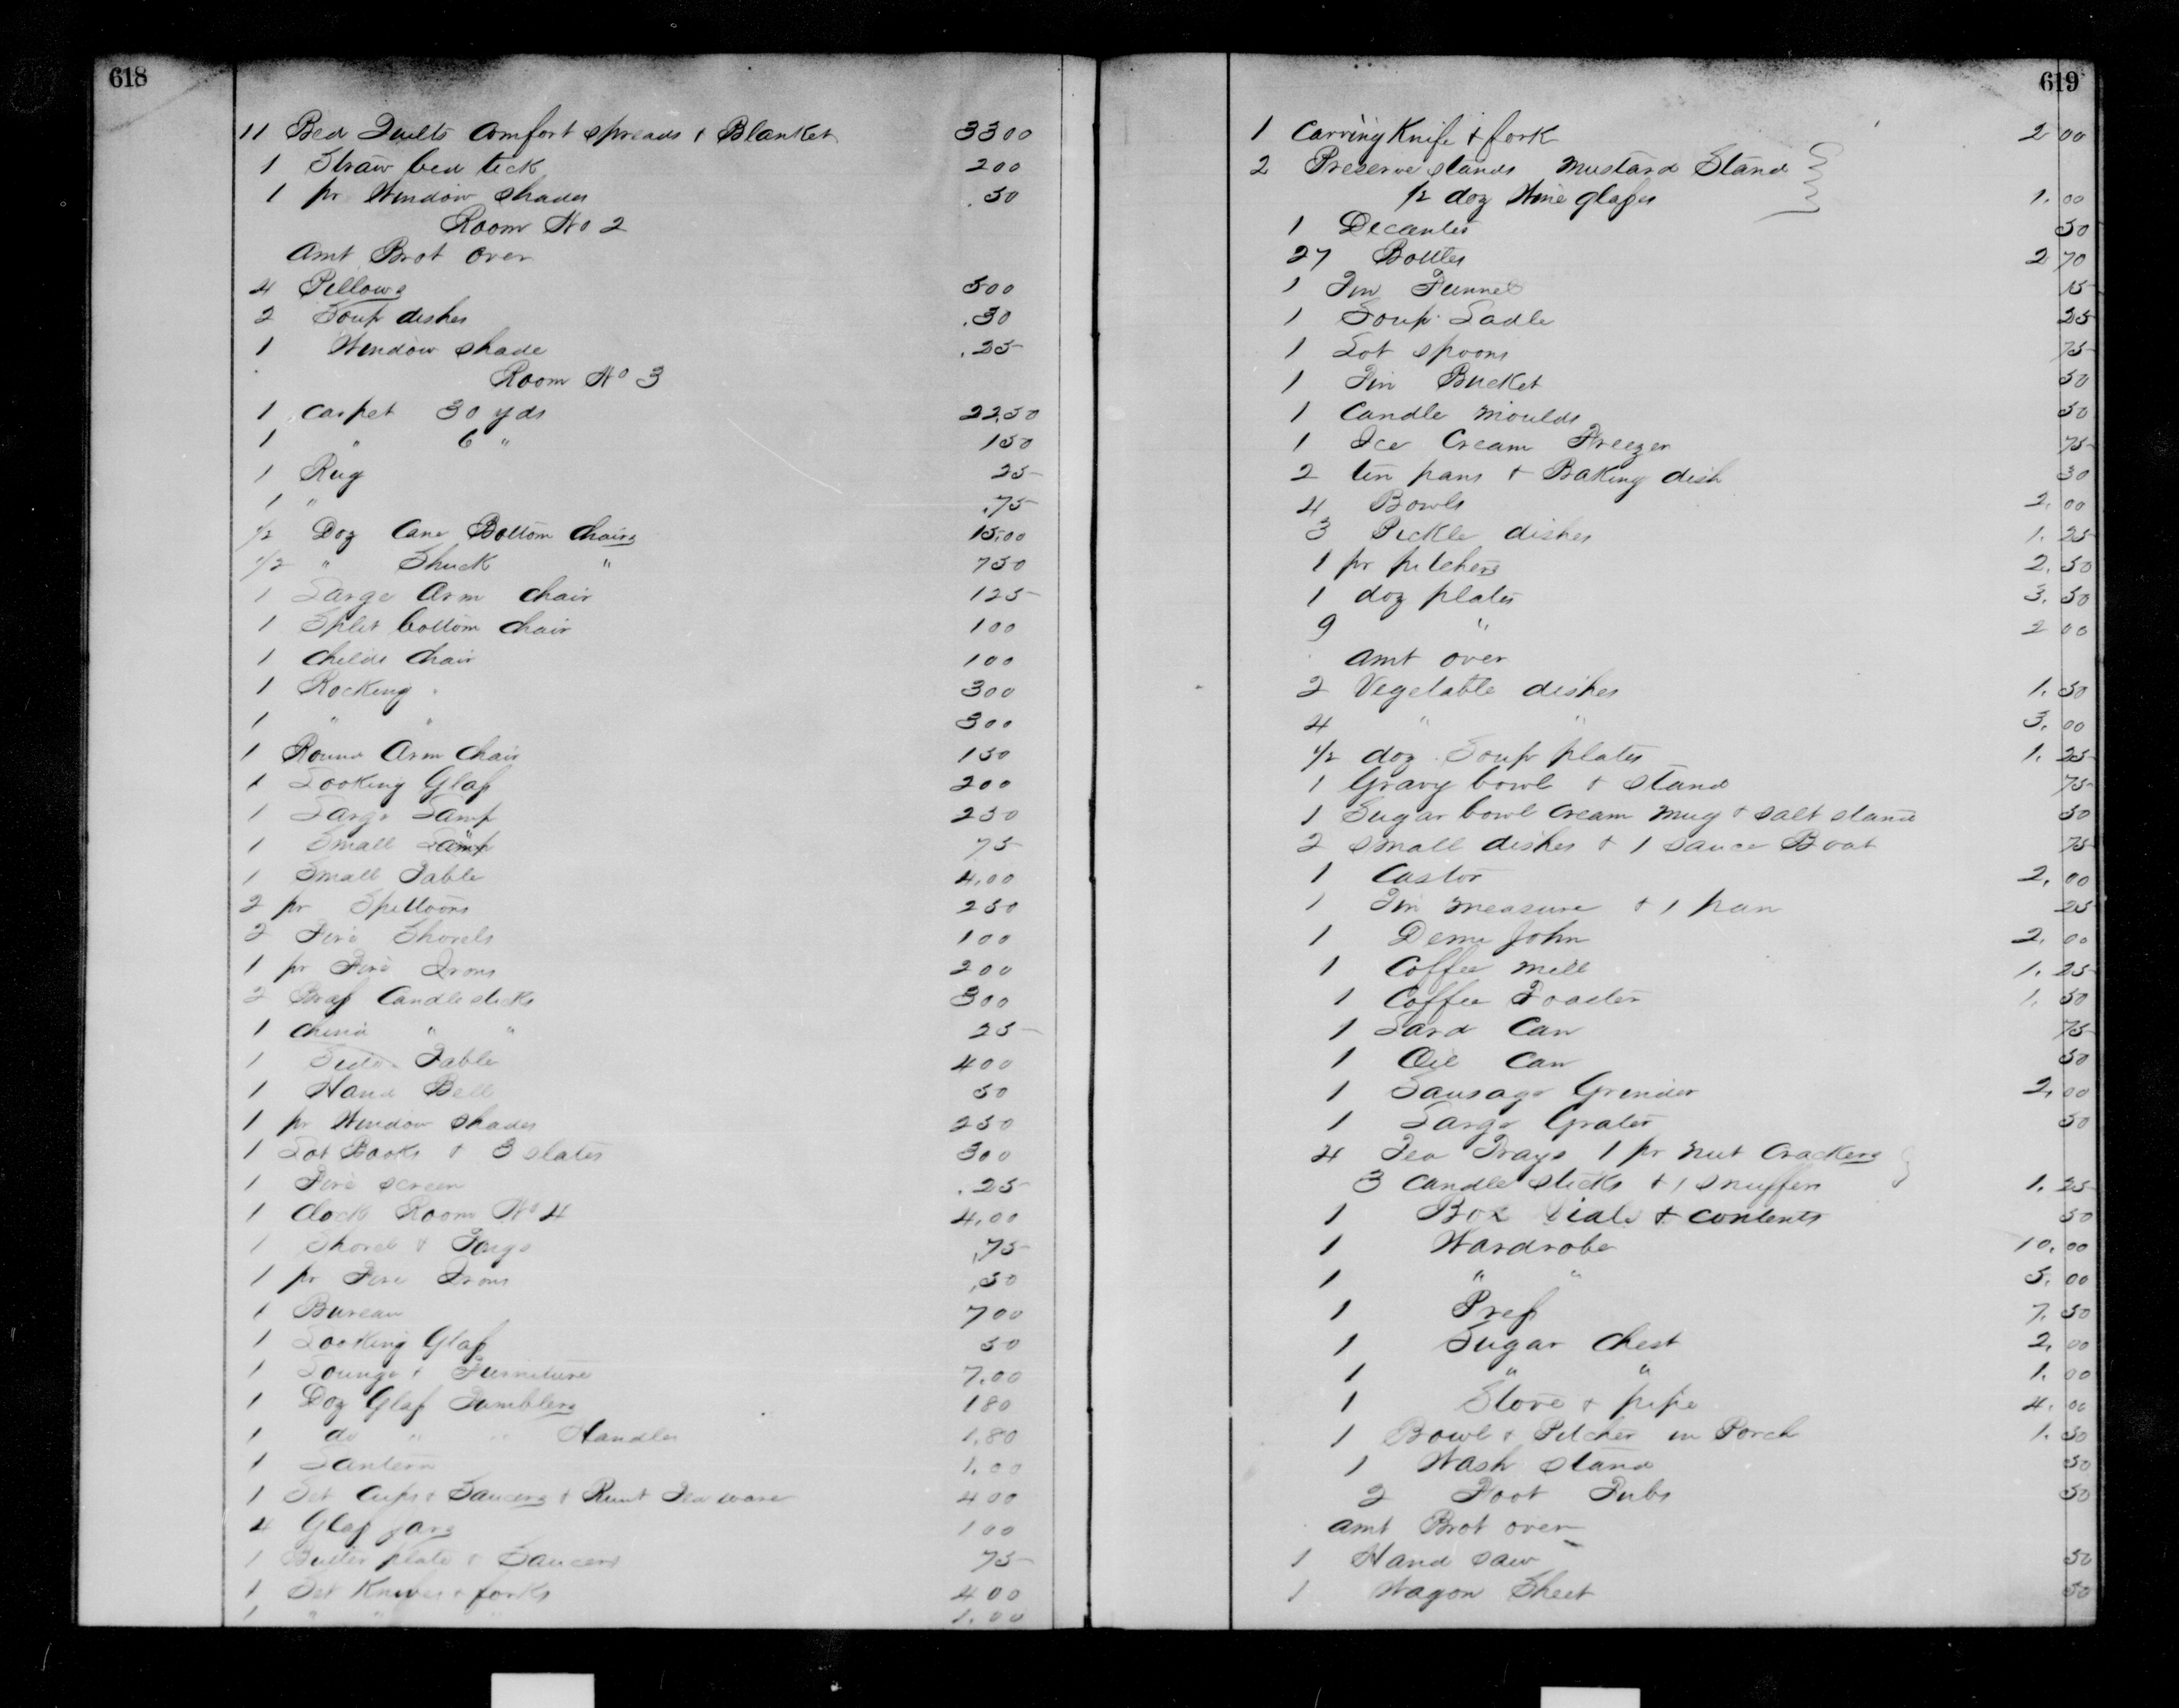 618
11 Bed Quilts Comfort spreads & Blanket 3300
1 Straw bed tick 200
1 pr Window Shades .50
Room No 2
Amt Brot Over
4 Pillows 500
2 Soup dishes .30
1 Window shade .25
Room No 3
1 Carpet 30 yds 22,50
1 " 6 " 150
1 Rug 25
1 " .75
1/2 Doz Cane Bottom Chairs 15,00
1/2 " Shuck " 750
1 Large Arm Chair 125
1 Split bottom chair 100
1 Childs Chair 100
1 Rocking " 300
1 " " 300
1 Round Arm Chair 150
1 Looking Glass 200
1 Large Lamp 250
1 Small Lamp 75
1 Small Table 4,00
2 pr Spittoons 250
2 Fire Shovels 100
1 pr Fire Irons 200
2 Brass Candlesticks 300
1 China " " 25
1 Side Table 400
1 Hand Bell 50
1 pr Window Shades 250
1 Lot Books & 3 slates 300
1 Fire screen .25
1 Clock Room No 4 4,00
1 Shovel & Tongs ,75
1 pr Fire Irons ,50
1 Bureau 700
1 Looking Glass 50
1 Lounge & Furniture 7.00
1 Doz Glass Tumblers 180
1 do " " Handles 1,80
1 Lantern 1.00
1 Set Cups & Saucers & Remt Tea ware 400
4 Glass Jars 100
1 Butter plate & Saucers 75
1 Set Knives & forks 400
1 " " " 1.00
619
1 Carving Knife & fork 2 00
2 Preserve stands Mustard Stand
1/2 doz Wine glasses 1.00
1 Decanter 50
27 Bottles 2 70
1 Tin Funnel 15
1 Soup Ladle 25
1 Lot spoons 75
1 Tin Bucket 50
1 Candle Moulds 50
1 Ice Cream Freezer 75
2 tin pans & Baking dish 30
4 Bowls 2.00
3 Pickle dishes 1.25
1 pr pitchers 2.50
1 doz plates 3.50
9 " 2 00
Amt over
2 Vegetable dishes 1.50
4 " " 3.00
1/2 doz Soup plates 1.25
1 Gravy bowl & stand 75
1 Sugar bowl Cream Mug & salt stand 50
2 small dishes & 1 Sauce Boat 75
1 Castor 2.00
1 Tin measure & 1 pan 25
1 Demi John 2.00
1 Coffee Mill 1.25
1 Coffee Toaster 1.50
1 Lard Can 75
1 Oil Can 50
1 Sausage Grinder 2,00
1 Large Grater 50
4 Tea Trays 1 pr Nut Crackers
3 Candle Sticks & 1 Snuffers 1.25
1 Box & Contents 50
1 Wardrobe 10.00
1 " " 5.00
1 Press 7.50
1 Sugar Chest 2,00
1 " " 1.00
1 Stove & pipe 4.00
1 Bowl & Pitcher in Porch 1.50
1 Wash Stand 50
2 Foot Tubs 50
Amt Brot over
1 Hand saw 50
1 Wagon Sheet 50